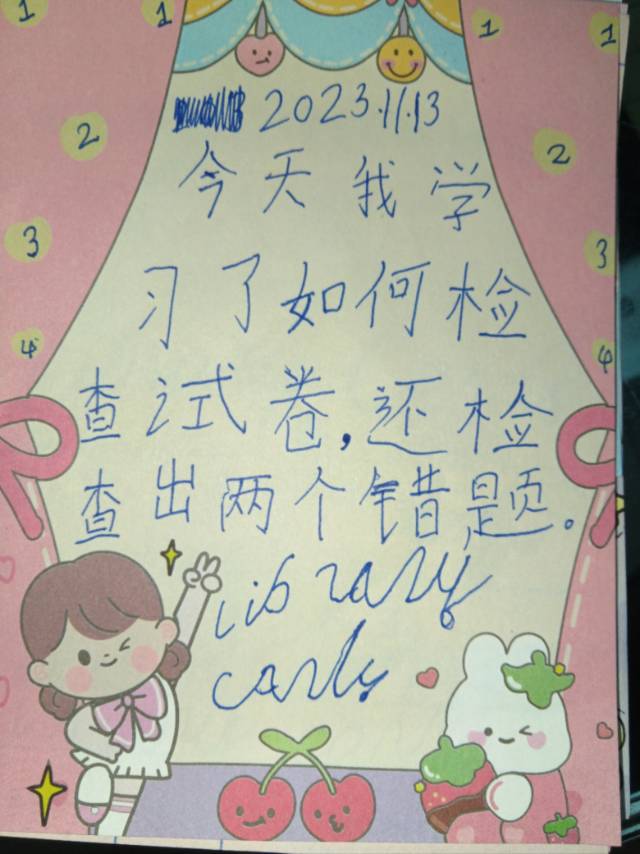 1 1 1 1
2023.11.13
2 2
今天我学
3 3
习了如何检
4 4
查试卷,还检
查出两个错题。
library